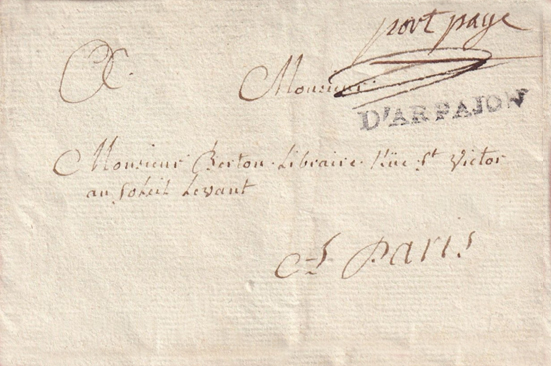 port payé
A
Monsieur
D'ARPAJON
Monsieur Berton Libraire Rüe St Victor
au soleil Levant
A Paris